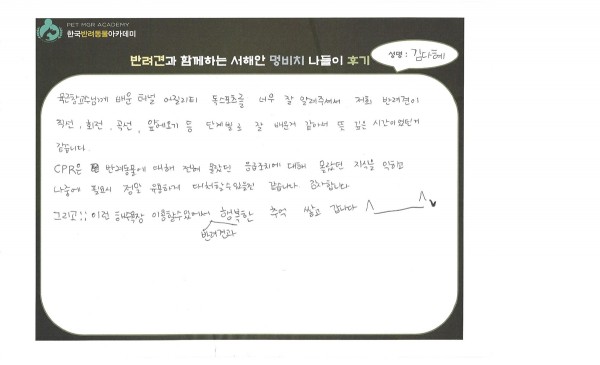 PET MGR ACADEMY
한국반려동물아카데미
반려견과 함께하는 서해안 멍비치 나들이 후기
성명 : 김다혜
배운 터널 어질리티 독스포츠를 너무 잘 알려주셔서 저희 반려견이
직선, 회전, 곡선, 앞에오기 등 단계별로 잘 배운거 같아서 뜻 깊은 시간이였던거
같습니다.
CPR은 반려동물에 대해 전혀 몰랐던 응급처치에 대해 몰랐던 지식을 익히고
나중에 필요시 정말 유용하게 대처할수있을것 같습니다 감사합니다
그리고 이런 해수욕장 이용할수있어서 행복한 추억 쌓고 갑니다
반려견과